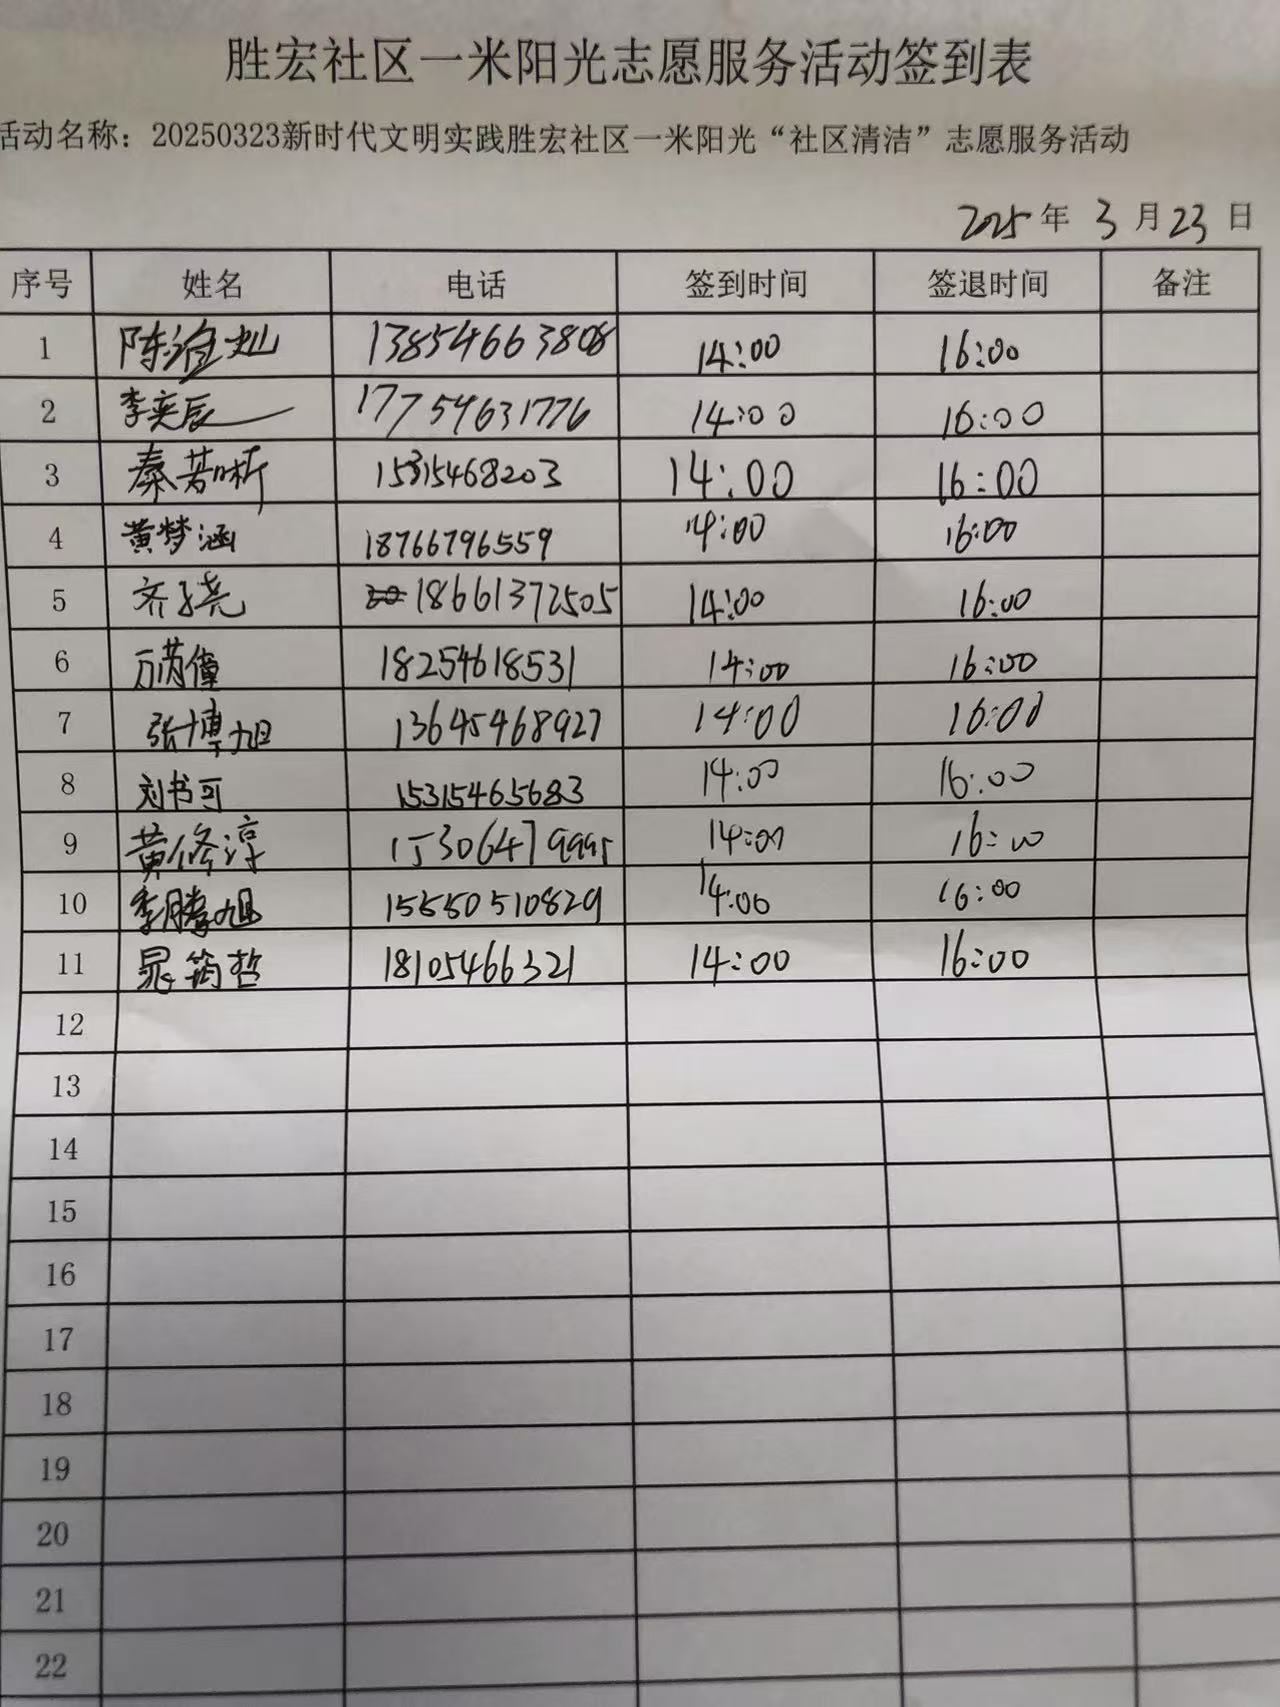 胜宏社区一米阳光志愿服务活动签到表
活动名称：20250323新时代文明实践胜宏社区一米阳光“社区清洁”志愿服务活动
2025年 3 月 23 日
序号 姓名 电话 签到时间 签退时间 备注
1 陈 灿 13854663808 14:00 16:00
2 李奕辰 17754631776 14:00 16:00
3 秦若晰 15315468203 14:00 16:00
4 黄梦涵 18766796559 14:00 16:00
5 齐子尧 18661372505 14:00 16:00
6 万芮僮 18254618531 14:00 16:00
7 张博旭 13645468927 14:00 16:00
8 刘书可 15315465683 14:00 16:00
9 黄修淳 15306479995 14:00 16:00
10 李腾旭 15550510829 14:00 16:00
11 晁筠哲 18105466321 14:00 16:00
12
13
14
15
16
17
18
19
20
21
22